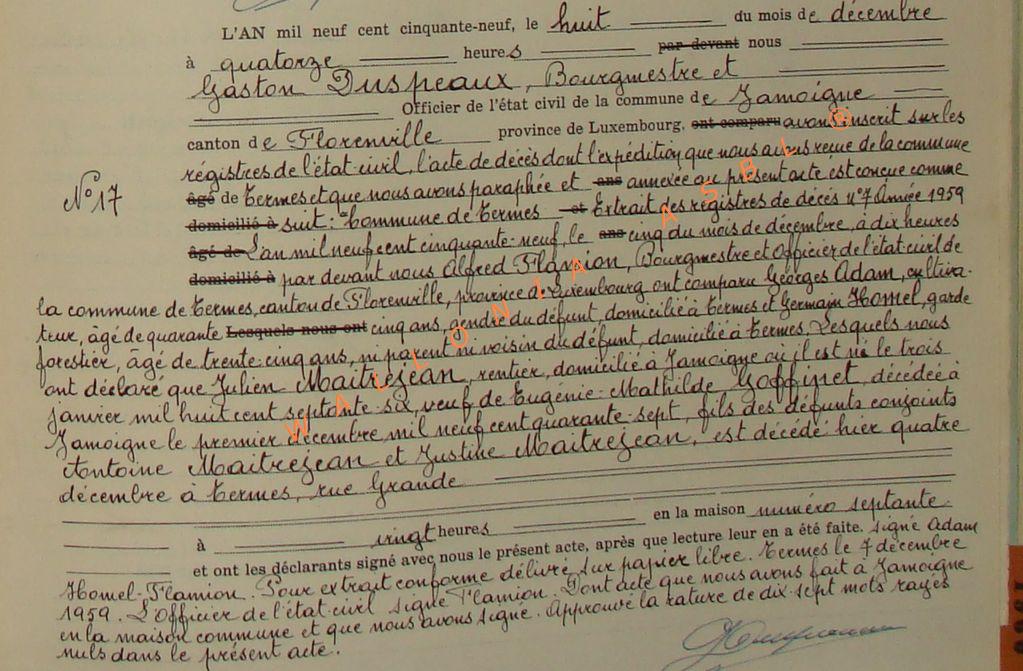 L'AN mil neuf cent cinquante-neuf, le huit du mois de décembre
à quatorze heures par devant nous
Gaston Duspeaux, Bourgmestre et
Officier de l'état civil de la commune de Jamoigne
canton de Florenville province de Luxembourg, ont comparu avons inscrit sur les
régistres de l'état-civil, l'acte de décès dont l'expédition que nous avons reçue de la commune
N° 17
âgé de Termes et que nous avons paraphée et ans annexée au présent acte est conçue comme
domicilié à suit: "Commune de Termes et Extrait des régistres de décès n°7 Année 1959
âgé de L'an mil neuf cent cinquante-neuf, le ans cinq du mois de décembre, à dix heures
domicilié à par devant nous Alfred Flamion, Bourgmestre et Officier de l'état-civil de
la commune de Termes, canton de Florenville, province de Luxembourg ont comparu Georges Adam, cultiva-
teur, âgé de quarante Lesquels nous ont cinq ans, gendre du défunt, domicilié à Termes et Germain Homel, garde
forestier, âgé de trente-cinq ans, ni parent ni voisin du défunt, domicilié à Termes. Lesquels nous
ont déclaré que Julien Maitrejean, rentier, domicilié à Jamoigne où il est né le trois
janvier mil huit cent septante-six, veuf de Eugénie-Mathilde Goffinet, décédée à
Jamoigne le premier décembre mil neuf cent quarante-sept, fils des défunts conjoints
Antoine Maitrejean et Justine Maitrejean, est décédé hier quatre
décembre à Termes, rue Grande
en la maison numéro septante
à vingt heures
et ont les déclarants signé avec nous le présent acte, après que lecture leur en a été faite. signé Adam
Homel-Flamion. Pour extrait conforme délivré sur papier libre. Termes le 7 décembre
1959. L'Officier de l'état-civil signé Flamion. Dont acte que nous avons fait à Jamoigne
en la maison commune et que nous avons signé. Approuvé la rature de dix-sept mots rayés
nuls dans le présent acte.
WALLONIA ASBL ©